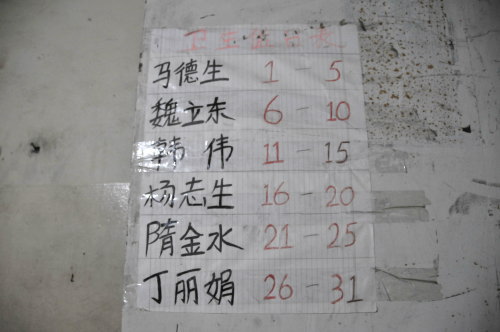 卫生值日表
马德生 1 - 5
魏立东 6 - 10
韩伟 11 - 15
杨志生 16 - 20
隋金水 21 - 25
丁丽娟 26 - 31